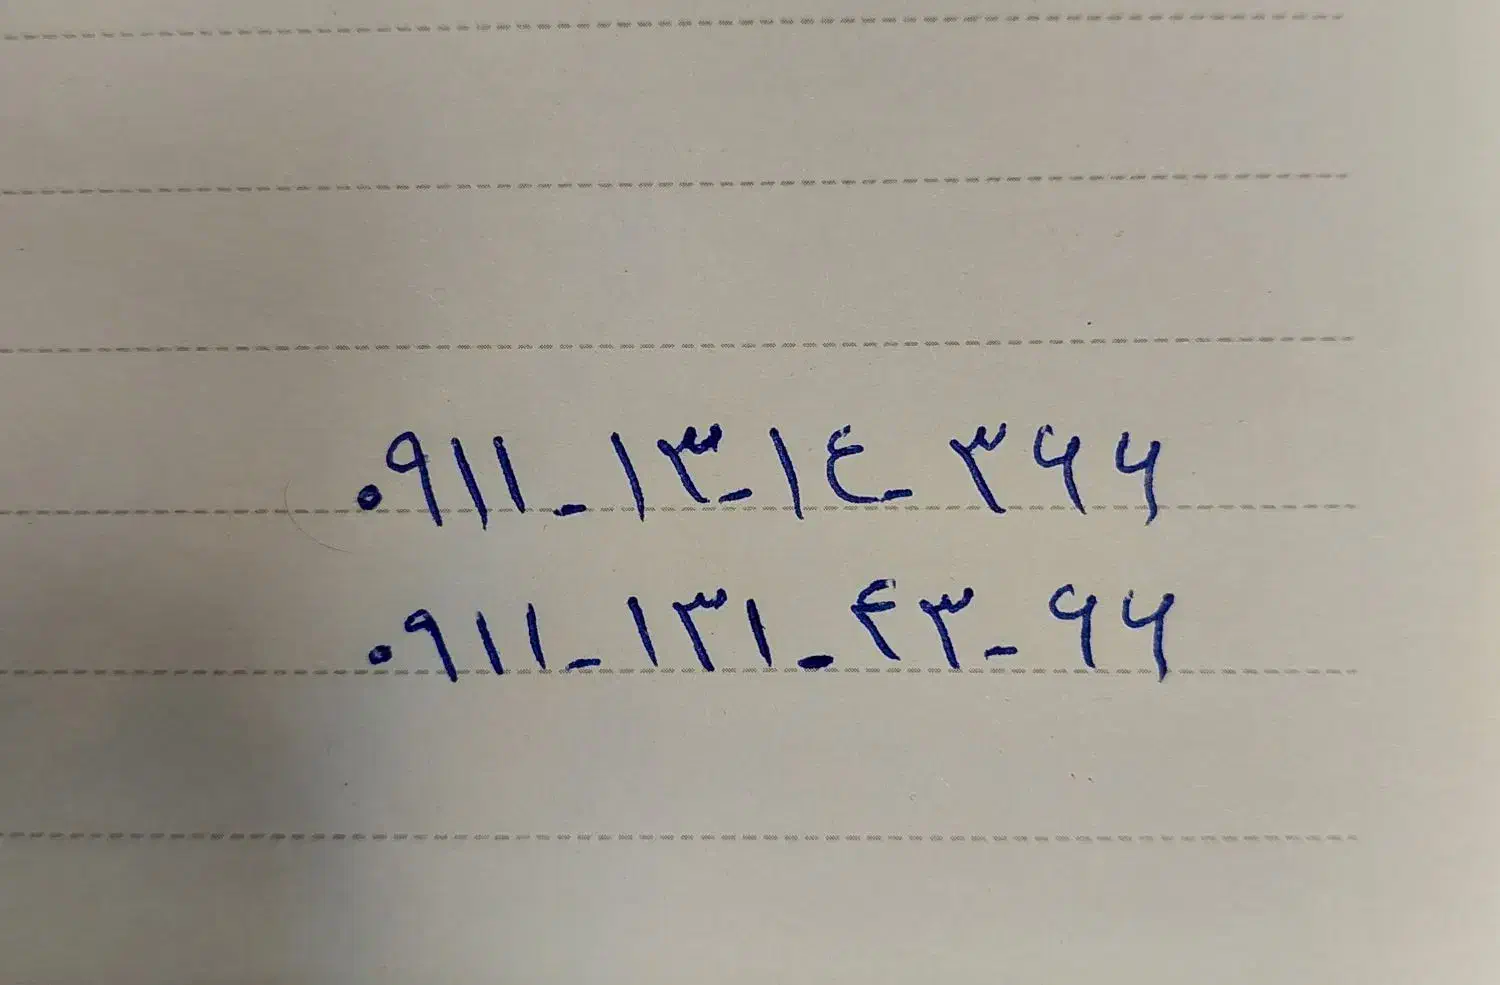 ۰۹۱۱-۱۳-۱٤-۳۶۶
۰۹۱۱-۱۳۱-۴۳-۶۶